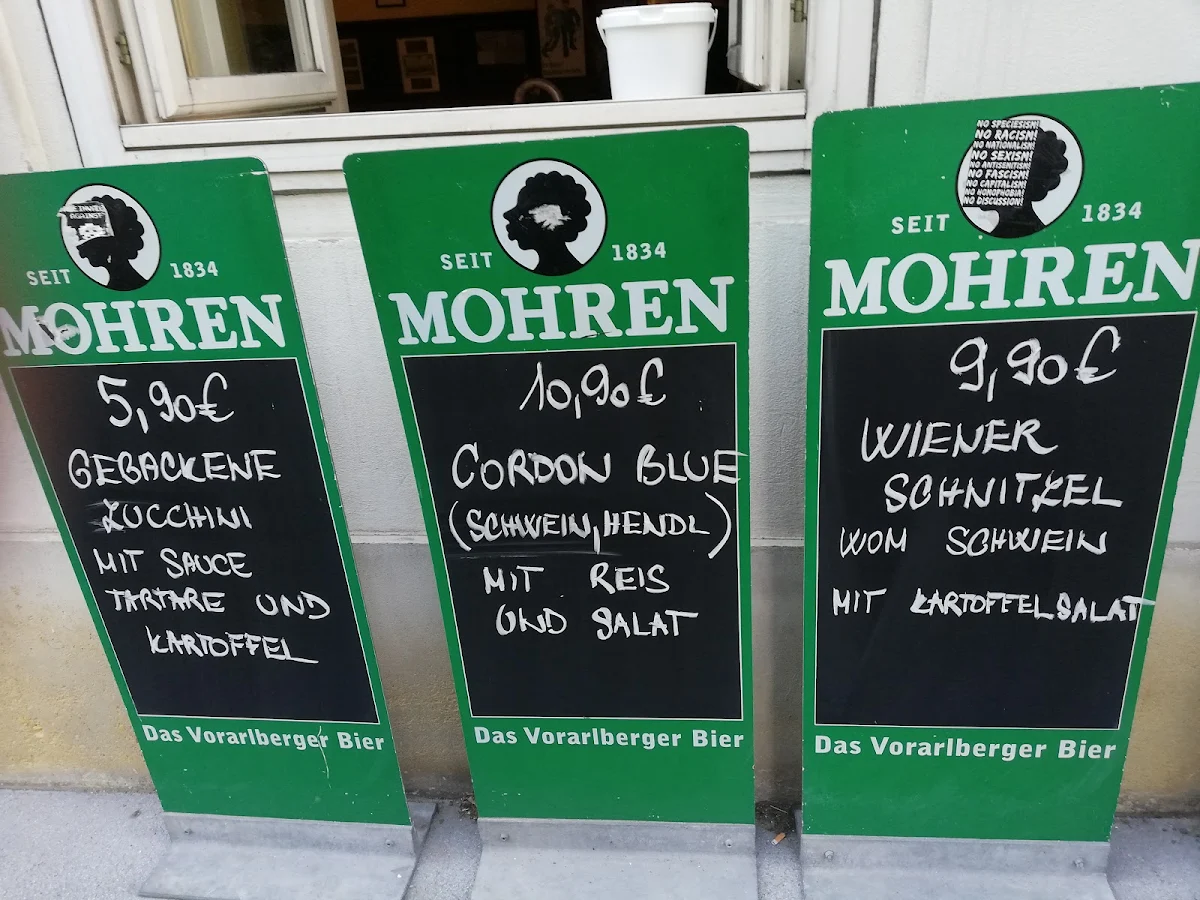 SEIT 1834
MOHREN
5,90€
GEBACKENE
ZUCCHINI
MIT SAUCE
TARTARE UND
KARTOFFEL
Das Vorarlberger Bier
SEIT 1834
MOHREN
10,90€
CORDON BLUE
(SCHWEIN, HENDL)
MIT REIS
UND SALAT
Das Vorarlberger Bier
NO SPECIESISM!
NO RACISM!
NO NATIONALISM!
NO SEXISM!
NO ANTISEMITISM!
NO FASCISM!
NO CAPITALISM!
NO HOMOPHOBIA!
NO DISCUSSION!
SEIT 1834
MOHREN
9,90€
WIENER
SCHNITZEL
WOM SCHWEIN
MIT KARTOFFELSALAT
Das Vorarlberger Bier